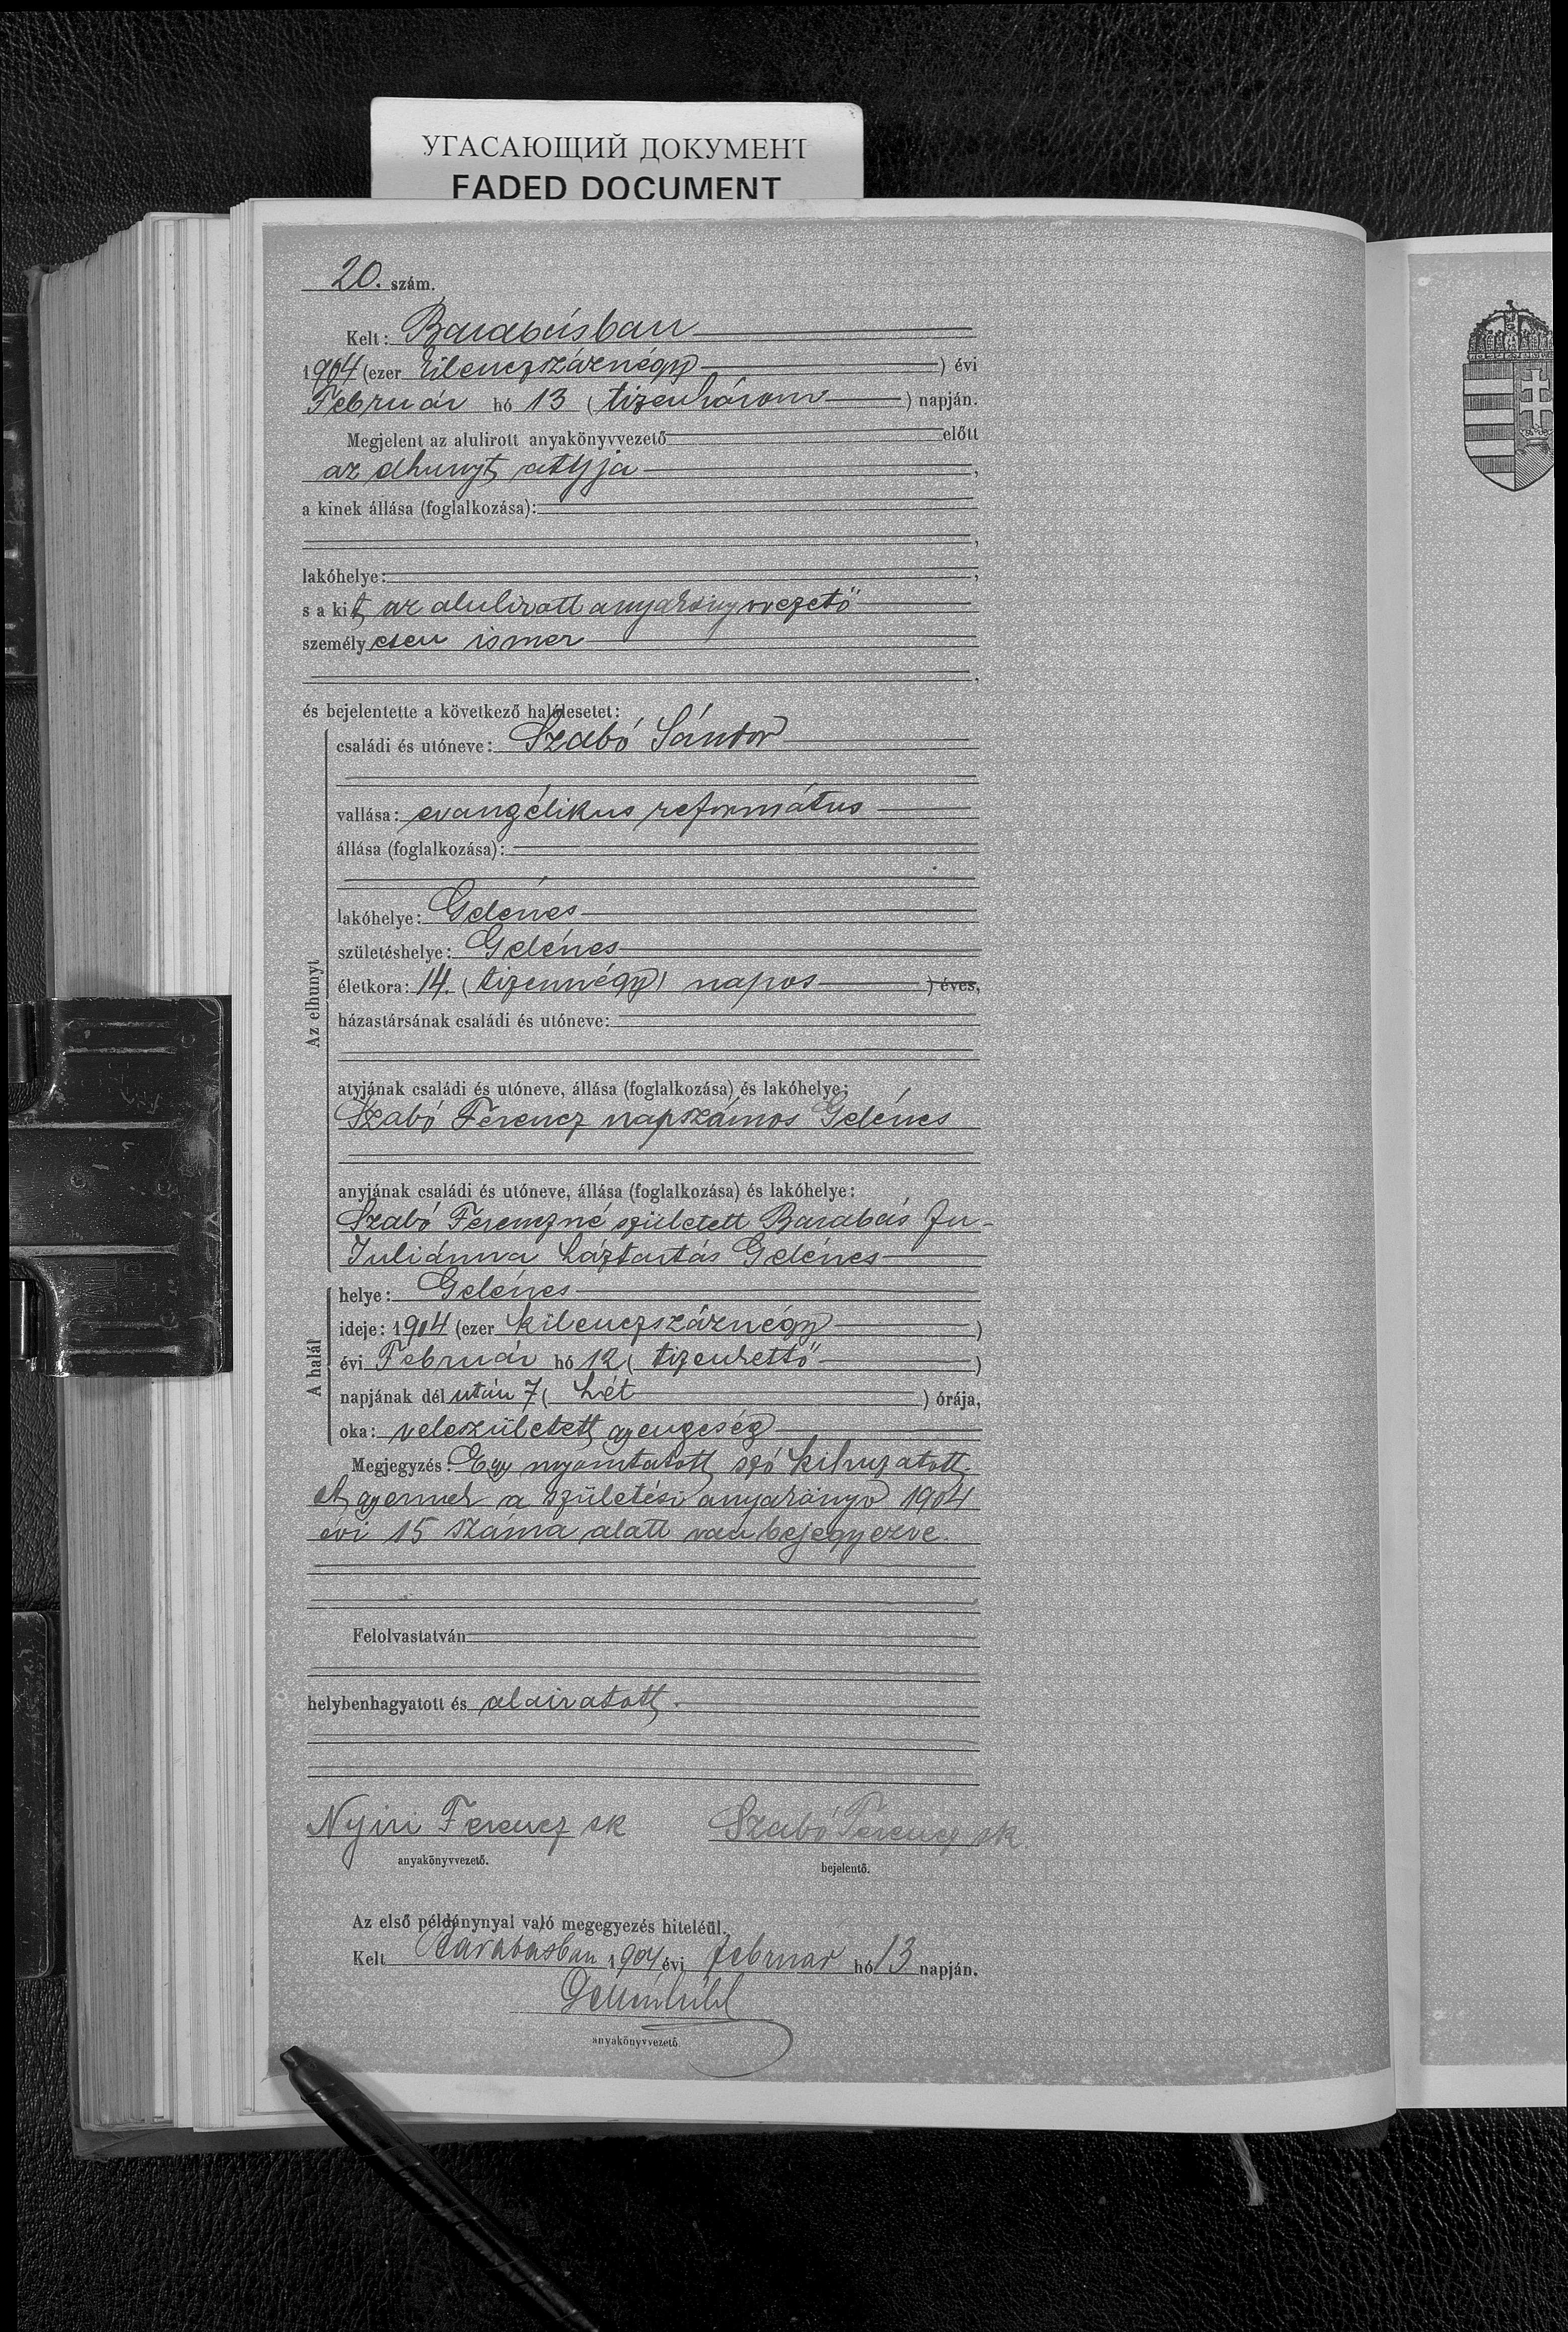 УГАСАЮЩИЙ ДОКУМЕНТ
FADED DOCUMENT
20. szám.
Kelt: Barabásban
1904 (ezer kilenczszáznégy) évi
Február hó 13 (tizenhárom) napján.
Megjelent az alulirott anyakönyvvezető előtt
az elhunyt atyja,
a kinek állása (foglalkozása):
,
lakóhelye: ,
s a kit az alulirott anyakönyvvezető
személyesen ismer
,
és bejelentette a következő halálesetet:
Az elhunyt
családi és utóneve: Szabó Sándor
vallása: evangélikus református
állása (foglalkozása):
lakóhelye: Gelénes
születéshelye: Gelénes
életkora: 14. (tizennégy) napos ) éves,
házastársának családi és utóneve:
atyjának családi és utóneve, állása (foglalkozása) és lakóhelye:
Szabó Ferencz napszámos Gelénes
anyjának családi és utóneve, állása (foglalkozása) és lakóhelye:
Szabó Ferenczné született Barabás Ju-
Juliánna háztartás Gelénes
A halál
helye: Gelénes
ideje: 1904 (ezer kilenczszáznégy )
évi Február hó 12 ( tizenkettő )
napjának dél után 7 ( hét ) órája,
oka: veleszületett gyengeség
Megjegyzés: Egy nyomtatott szó kihuzatott.
A gyermek a születési anyakönyv 1904
évi 15 száma alatt van bejegyezve.
Felolvastatván
helybenhagyatott és alairatott.
Nyiri Ferencz sk Szabó Ferencz sk
anyakönyvvezető. bejelentő.
Az első példánynyal való megegyezés hiteléül.
Kelt Barabásban 1904 évi februar hó 13 napján.
anyakönyvvezető.